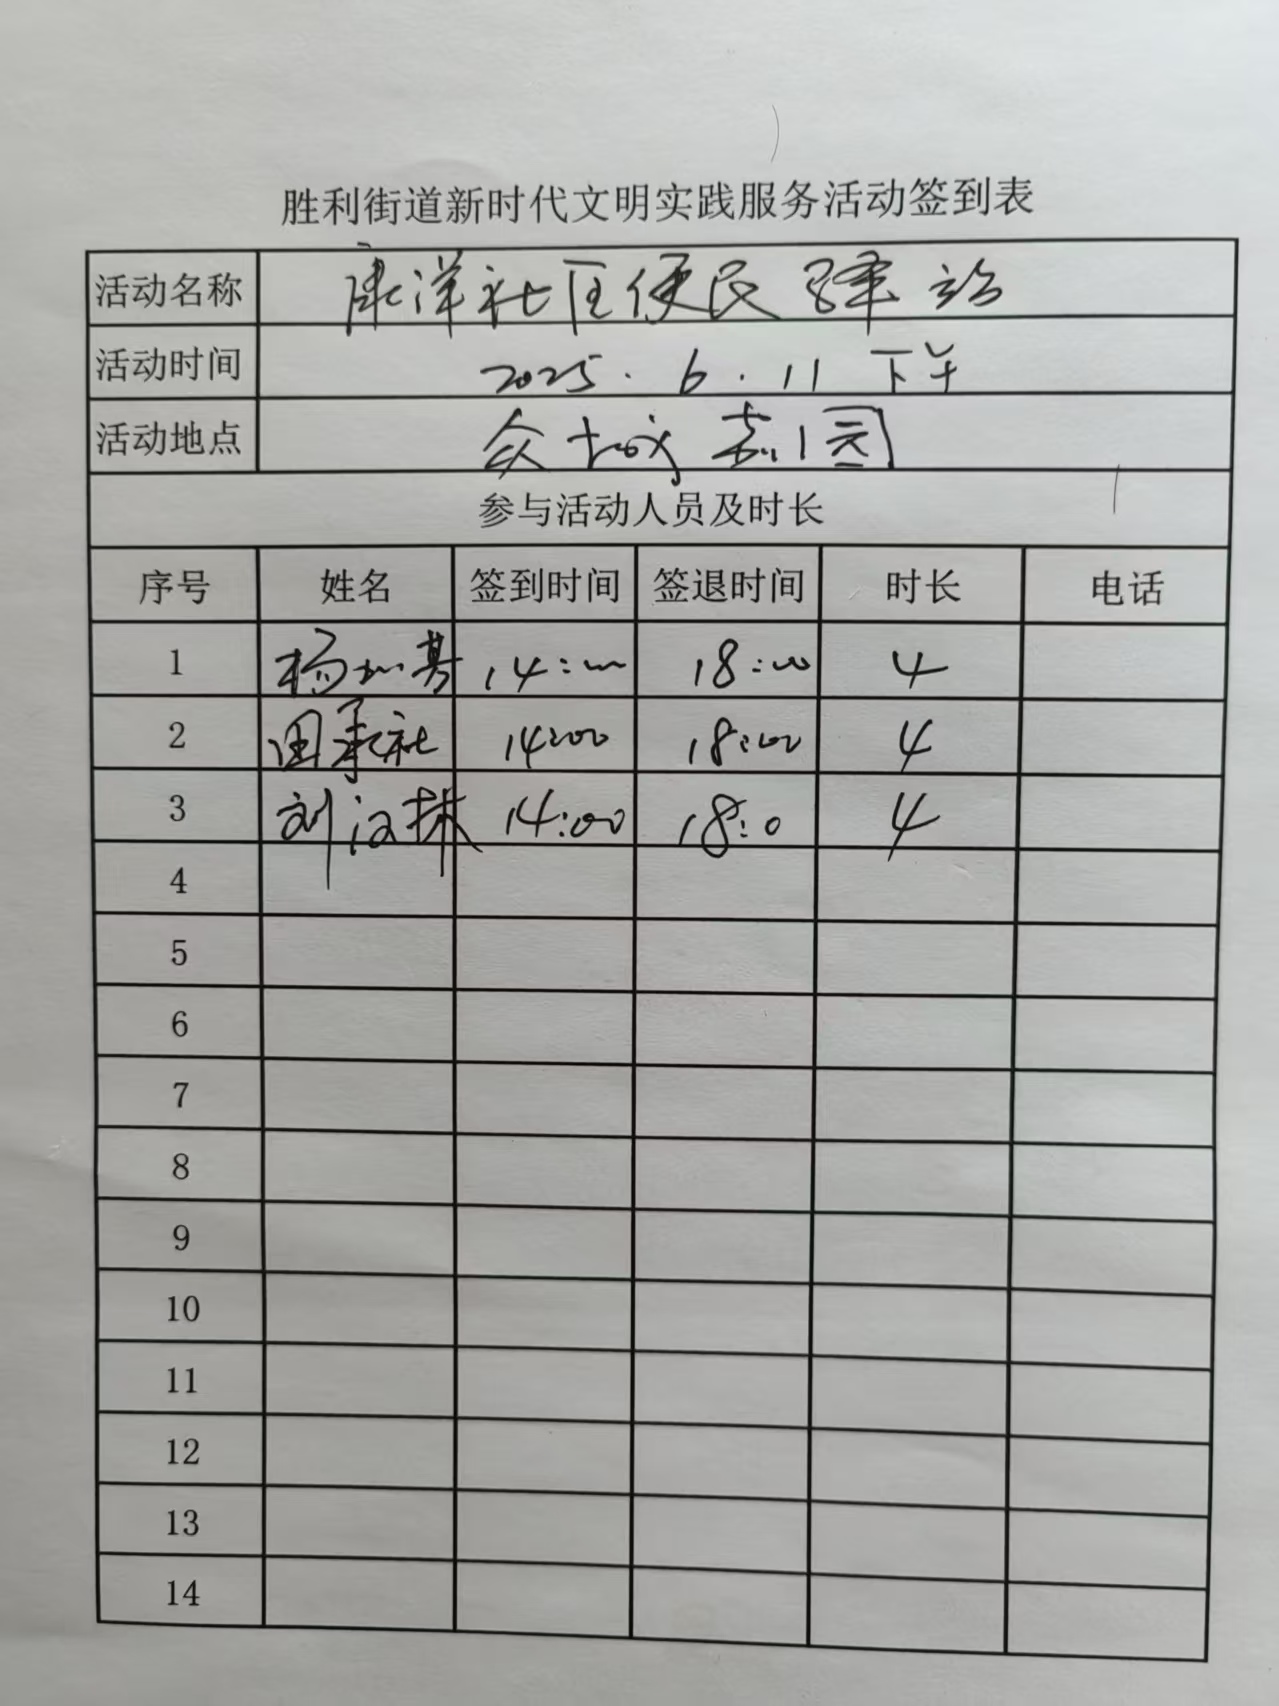 胜利街道新时代文明实践服务活动签到表
活动名称 康洋社区便民驿站
活动时间 2025.6.11 下午
活动地点 众城嘉园
参与活动人员及时长
序号 姓名 签到时间 签退时间 时长 电话
1 杨 14:00 18:00 4
2 田承社 14:00 18:00 4
3 刘汉林 14:00 18:0 4
4
5
6
7
8
9
10
11
12
13
14